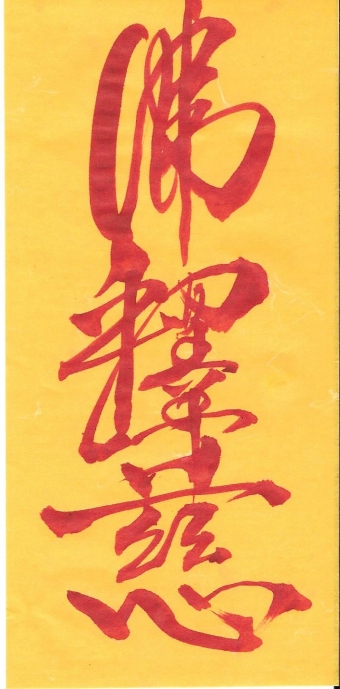 佛釋慈